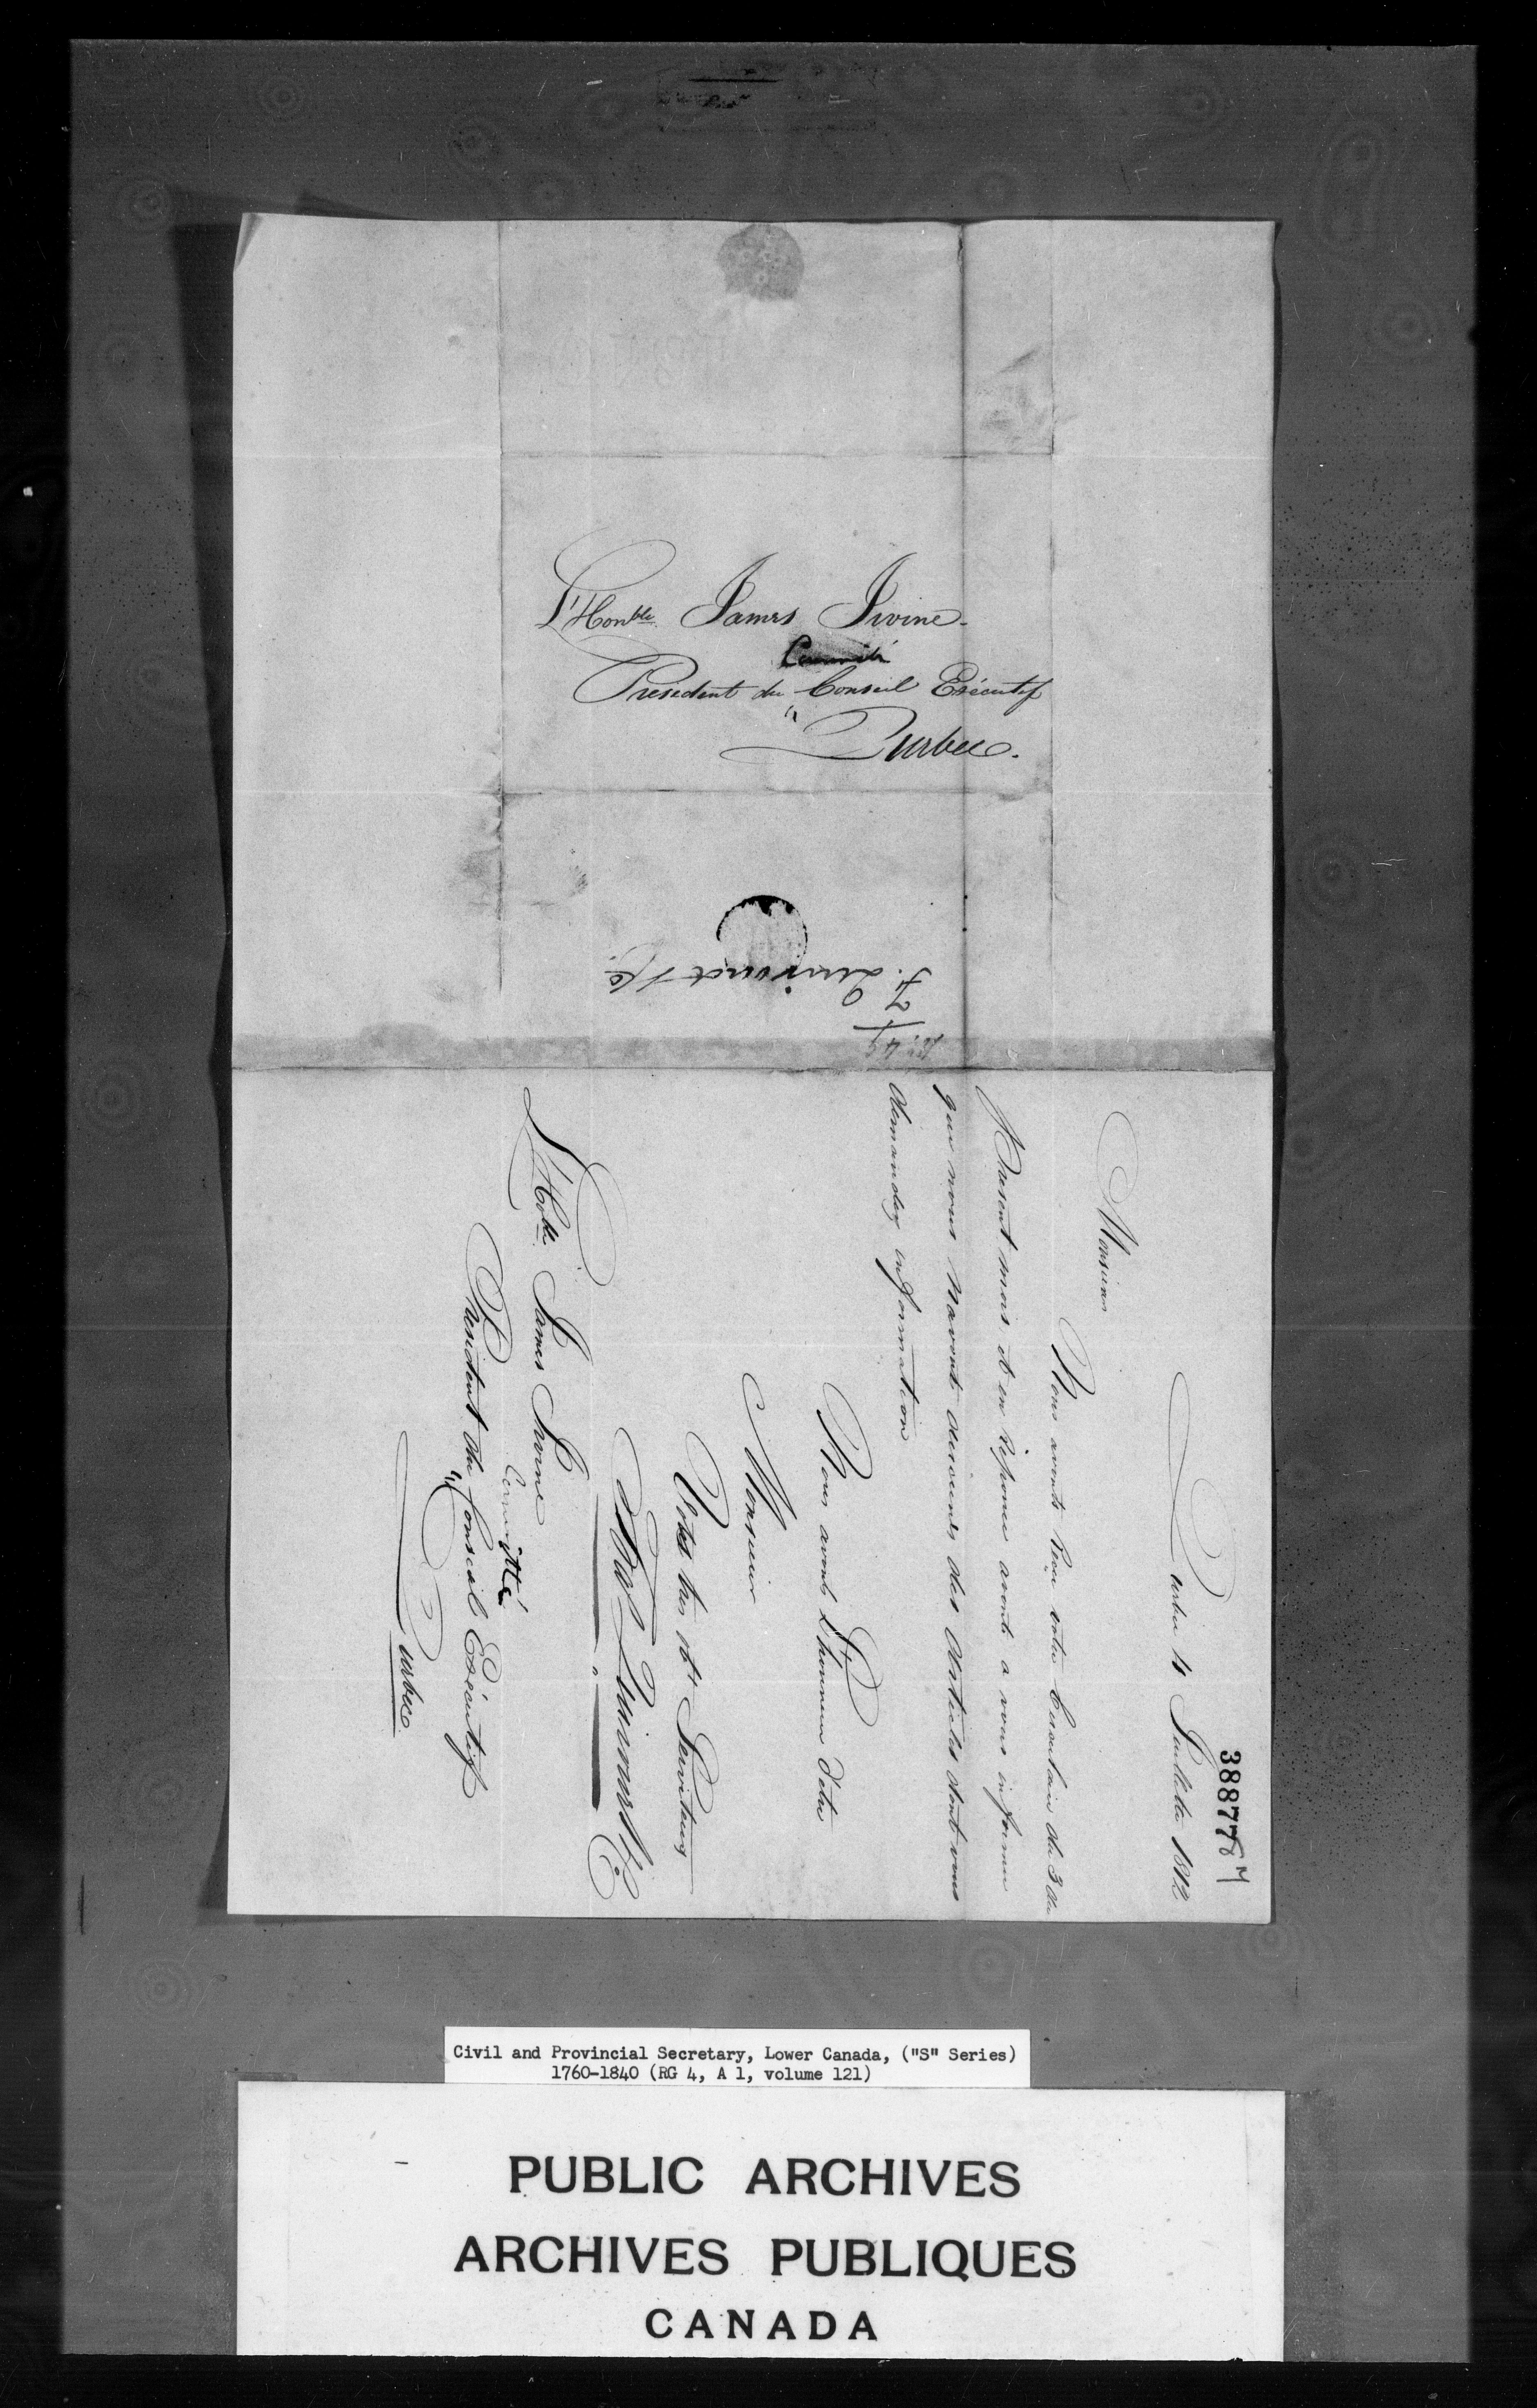 L'Honble James Irvine
Committé
President du Conseil Exécutif
"
Quebec.
F. Quirouet & Co
38877
Quebec 4 Juillete 1812
Monsieur
Nous avonts Reçu votre Circulair du 3 du
Present mois et en Réponce avonts a vous informer
que nous navonts aucunes des Articles dont vous
demandez information
Nous avonts L'honneur d'etre
Monsieur
Votes tres obt Serviteurs
L'Hoble James Irvine
Committé
President du Conseil Exécutif
"
Quebec
Civil and Provincial Secretary, Lower Canada, ("S" Series)
1760-1840 (RG 4, A 1, volume 121)
PUBLIC ARCHIVES
ARCHIVES PUBLIQUES
CANADA